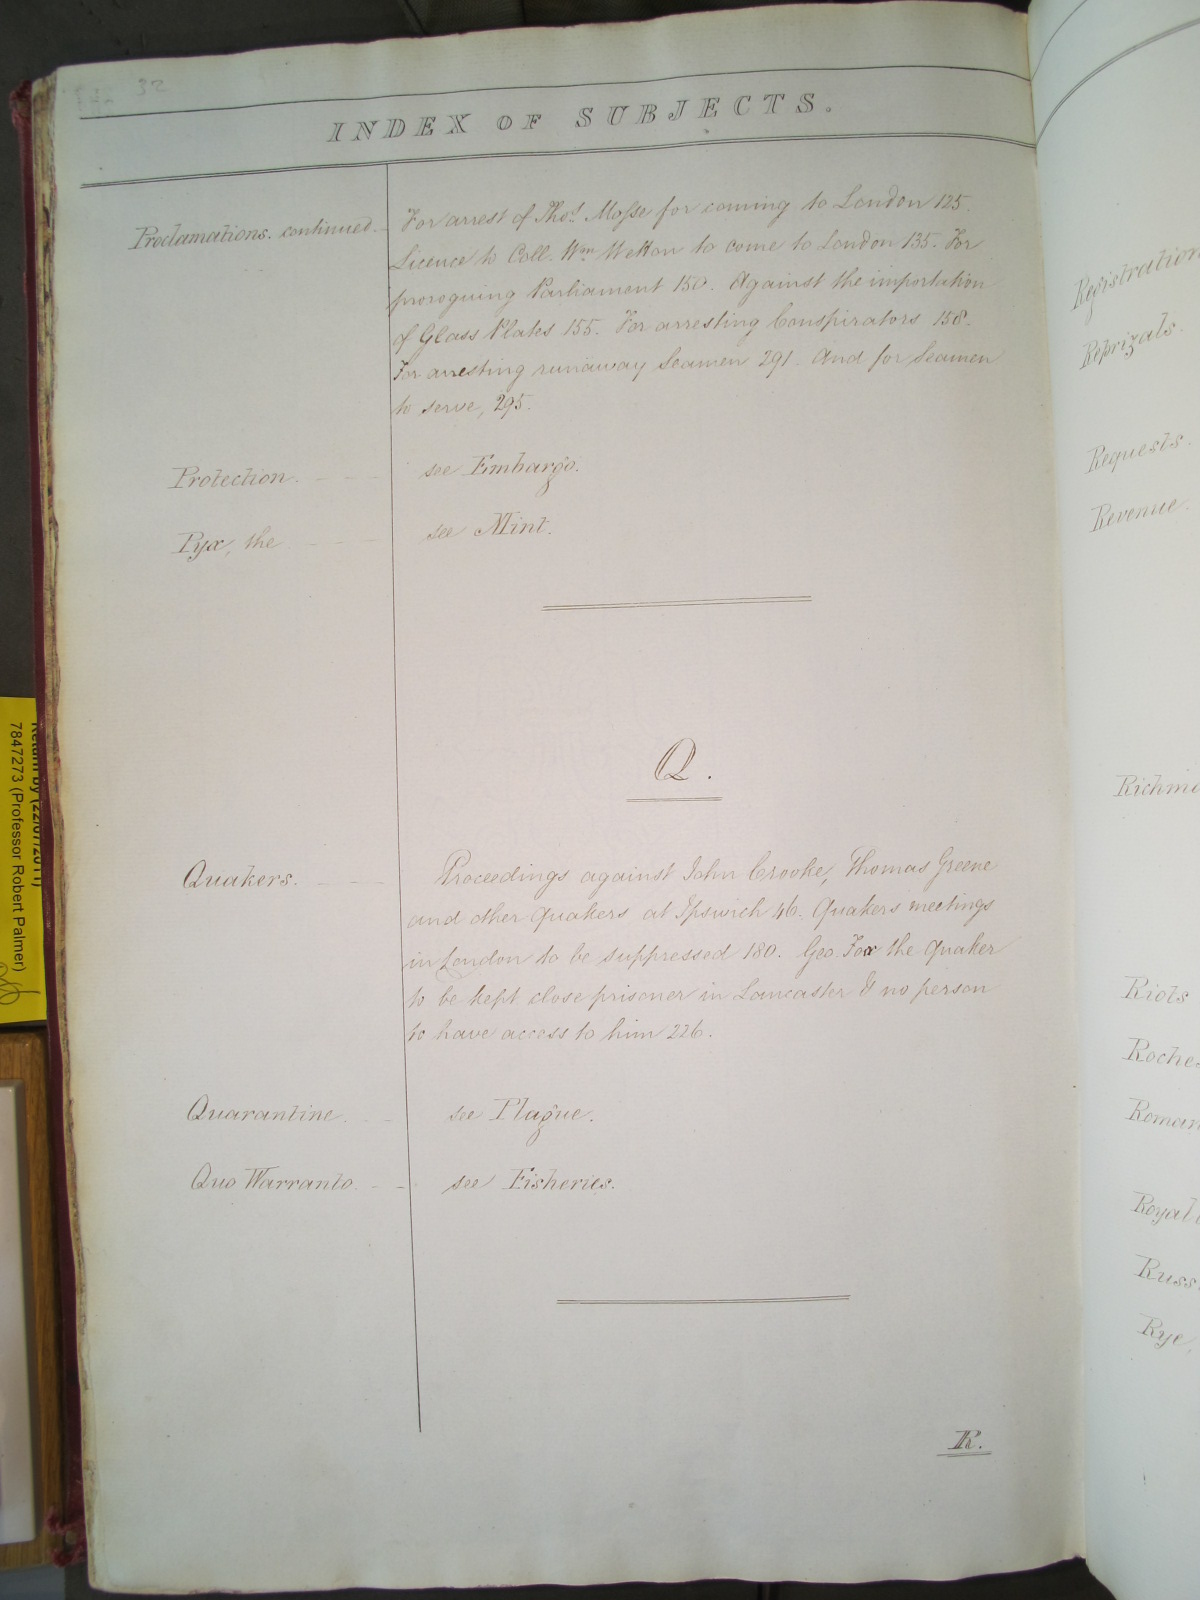 32
INDEX OF SUBJECTS.
Proclamations. continued.
For arrest of Thos. Mosse for coming to London 125.
Licence to Coll. Wm. Wetton to come to London 135. For
proroguing Parliament 150. Against the importation
of Glass Plates 155. For arresting Conspirators 158.
For arresting runaway Seamen 291. And for Seamen
to serve, 295.
Protection. see Embargo.
Pyx, the see Mint.
Q.
Quakers. Proceedings against John Crooke, Thomas Greene
and other Quakers at Ipswich 46. Quakers meetings
in London to be suppressed 180. Geo. Fox the Quaker
to be kept close prisoner in Lancaster & no person
to have access to him 226.
Quarantine. see Plague.
Quo Warranto. see Fisheries.
R.
Registration
Reprizals.
Requests.
Revenue.
Richm
Riots
Roche
Roman
Royal
Russ
Rye,
Return by (22/07/2011)
7847273 (Professor Robert Palmer)